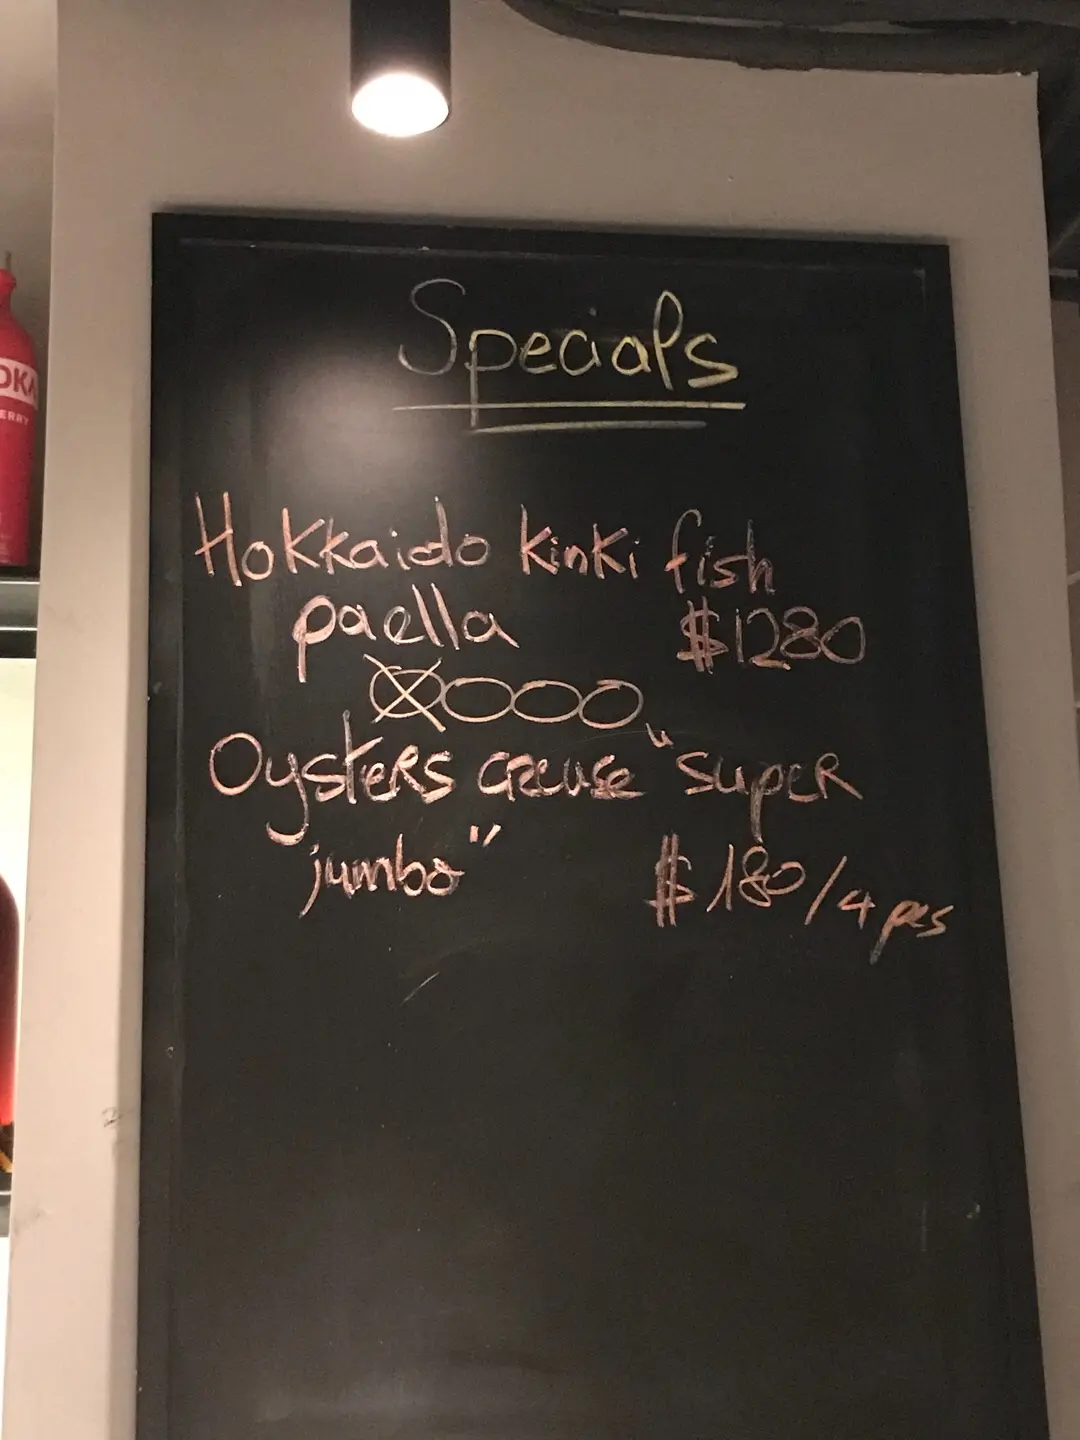 Specials
Hokkaido Kinki fish
paella $1280
Oysters creuse "super
jumbo" $180/4 pcs
OKA
ERRY